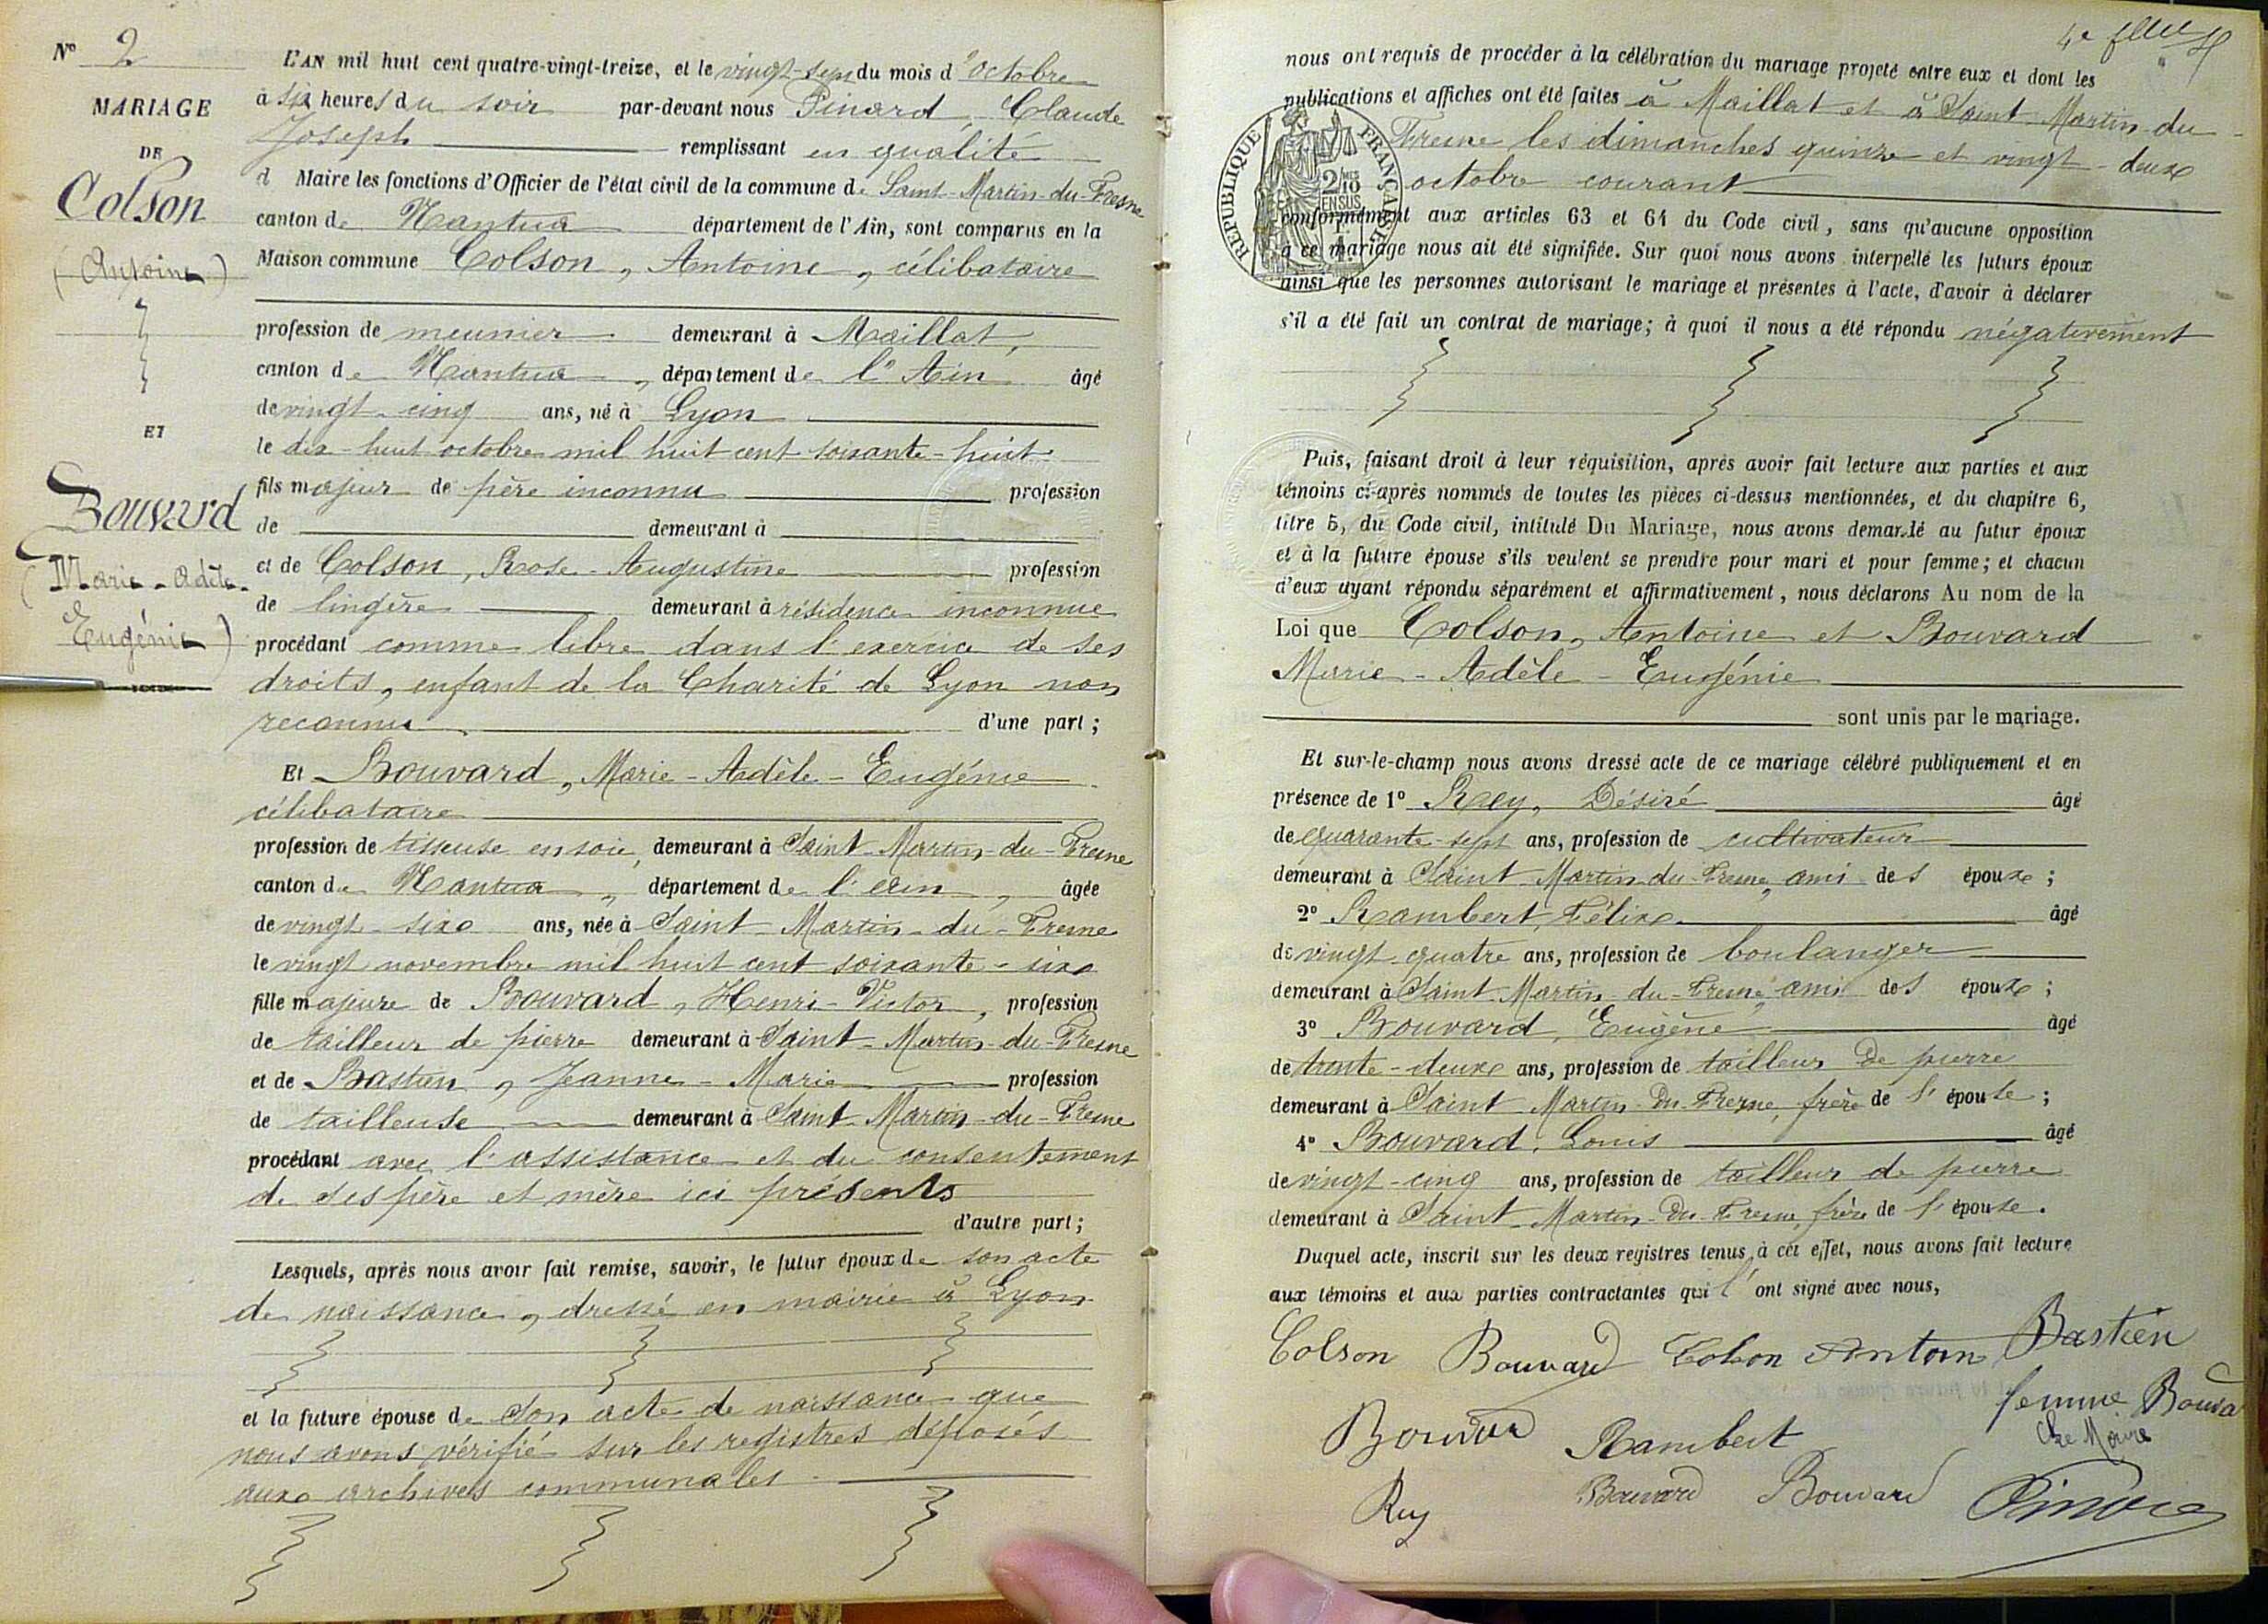 N° 2
MARIAGE
DE
Colson
(Antoine)
ET
Bouvard
(Marie-Adèle-
Eugénie)
L'AN mil huit cent quatre-vingt-treize, et le vingt-sept du mois d'octobre
à six heures du soir par-devant nous Pinard, Claude
Joseph remplissant en qualité
d Maire les fonctions d'Officier de l'état civil de la commune de Saint-Martin-du-Fresne
canton de Nantua département de l'Ain, sont comparus en la
Maison commune Colson, Antoine, célibataire
profession de meunier demeurant à Maillat,
canton de Nantua, département de l'Ain âgé
de vingt-cinq ans, né à Lyon
le dix-huit octobre mil huit cent soixante-huit
fils majeur de père inconnu profession
de demeurant à
et de Colson, Rose-Augustine profession
de lingère demeurant à résidence inconnue
procédant comme libre dans l'exercice de ses
droits, enfant de la Charité de Lyon non
reconnu. d'une part;
Et Bouvard, Marie-Adèle-Eugénie
célibataire
profession de tisseuse en soie, demeurant à Saint-Martin-du-Fresne
canton de Nantua, département de l'Ain, âgée
de vingt-six ans, née à Saint-Martin-du-Fresne
le vingt novembre mil huit cent soixante-six
fille majeure de Bouvard, Henri-Victor, profession
de tailleur de pierre demeurant à Saint-Martin-du-Fresne
et de Bastien, Jeanne-Marie profession
de tailleuse demeurant à Saint-Martin-du-Fresne
procédant avec l'assistance et du consentement
de ses père et mère ici présents
d'autre part;
Lesquels, après nous avoir fait remise, savoir, le futur époux de son acte
de naissance, dressé en mairie à Lyon
et la future épouse de son acte de naissance que
nous avons vérifié sur les registres déposés
aux archives communales
4e
nous ont requis de procéder à la célébration du mariage projeté entre eux et dont les
publications et affiches ont été faites à Maillat et à Saint-Martin-du-
Fresne les dimanches quinze et vingt-deux
octobre courant
RÉPUBLIQUE FRANÇAISE
2/10 EN SUS
conformément aux articles 63 et 64 du Code civil, sans qu'aucune opposition
à ce mariage nous ait été signifiée. Sur quoi nous avons interpellé les futurs époux
ainsi que les personnes autorisant le mariage et présentes à l'acte, d'avoir à déclarer
s'il a été fait un contrat de mariage; à quoi il nous a été répondu négativement
Puis, faisant droit à leur réquisition, après avoir fait lecture aux parties et aux
témoins ci-après nommés de toutes les pièces ci-dessus mentionnées, et du chapitre 6,
titre 5, du Code civil, intitulé Du Mariage, nous avons demandé au futur époux
et à la future épouse s'ils veulent se prendre pour mari et pour femme; et chacun
d'eux ayant répondu séparément et affirmativement, nous déclarons Au nom de la
Loi que Colson, Antoine et Bouvard
Marie-Adèle-Eugénie
sont unis par le mariage.
Et sur-le-champ nous avons dressé acte de ce mariage célébré publiquement et en
présence de 1° Rey, Désiré âgé
de quarante-sept ans, profession de cultivateur
demeurant à Saint-Martin-du-Fresne, ami des époux;
2° Rambert, Félix. âgé
de vingt quatre ans, profession de boulanger
demeurant à Saint-Martin-du-Fresne, ami des époux;
3° Bouvard, Eugène âgé
de trente-deux ans, profession de tailleur de pierre
demeurant à Saint-Martin-du-Fresne, frère de l'épouse;
4° Bouvard, Louis âgé
de vingt-cinq ans, profession de tailleur de pierre
demeurant à Saint-Martin-du-Fresne, frère de l'épouse.
Duquel acte, inscrit sur les deux registres tenus à cet effet, nous avons fait lecture
aux témoins et aux parties contractantes qui l'ont signé avec nous,
Colson Bouvard Colson Antoin Bastien
femme Bouva
Bouvard Rambert Le Maire
Rey Bouvard Bouvard Pinard